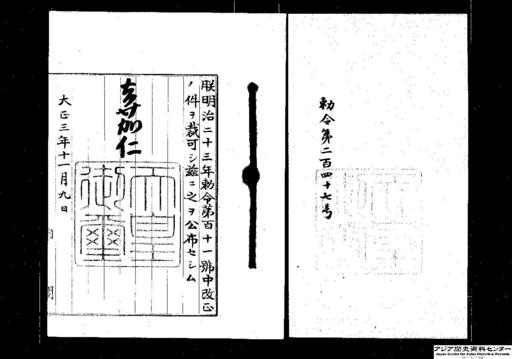 勅令第二百四十七号
朕明治二十三年勅令第百十一號中改正
ノ件ヲ裁可シ茲ニ之ヲ公布セシム
嘉仁
天皇
御璽
大正三年十一月九日
内閣
アジア歴史資料センター
Japan Center for Asian Historical Records